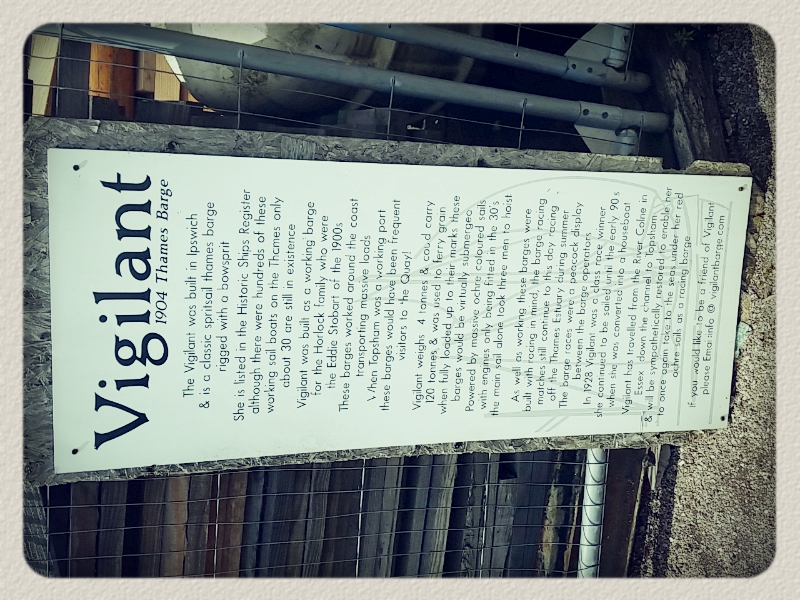 Vigilant
1904 Thames Barge
The Vigilant was built in Ipswich
& is a classic spritsail thames barge
rigged with a bowsprit
She is listed in the Historic Ships Register
although there were hundreds of these
working sail boats on the Thames only
about 30 are still in existence
Vigilant was built as a working barge
for the Horlock family who were
the Eddie Stobart of the 1900s
These barges worked around the coast
transporting massive loads
When Topsham was a working port
these barges would have been frequent
visitors to the Quay!
Vigilant weighs 4 tonnes & could carry
120 tonnes & was used to ferry grain
when fully loaded up to their marks these
barges would be virtually submerged
Powered by massive ochre coloured sails
with engines only being fitted in the 30's
the main sail alone took three men to hoist
As well as working these barges were
built with racing in mind, the barge racing
matches still continue to this day racing
off the Thames Estuary during summer
The barge races were a peacock display
between the barge operators
In 1928 Vigilant was a class race winner
she continued to be sailed until the early 90's
when she was converted into a houseboat
Vigilant has travelled from the River Colne in
Essex down the channel to Topsham
& will be sympathetically restored to enable her
to once again take to the seas under her red
ochre sails as a racing barge
if you would like to be a friend of Vigilant
please Email info @ vigilantbarge.com